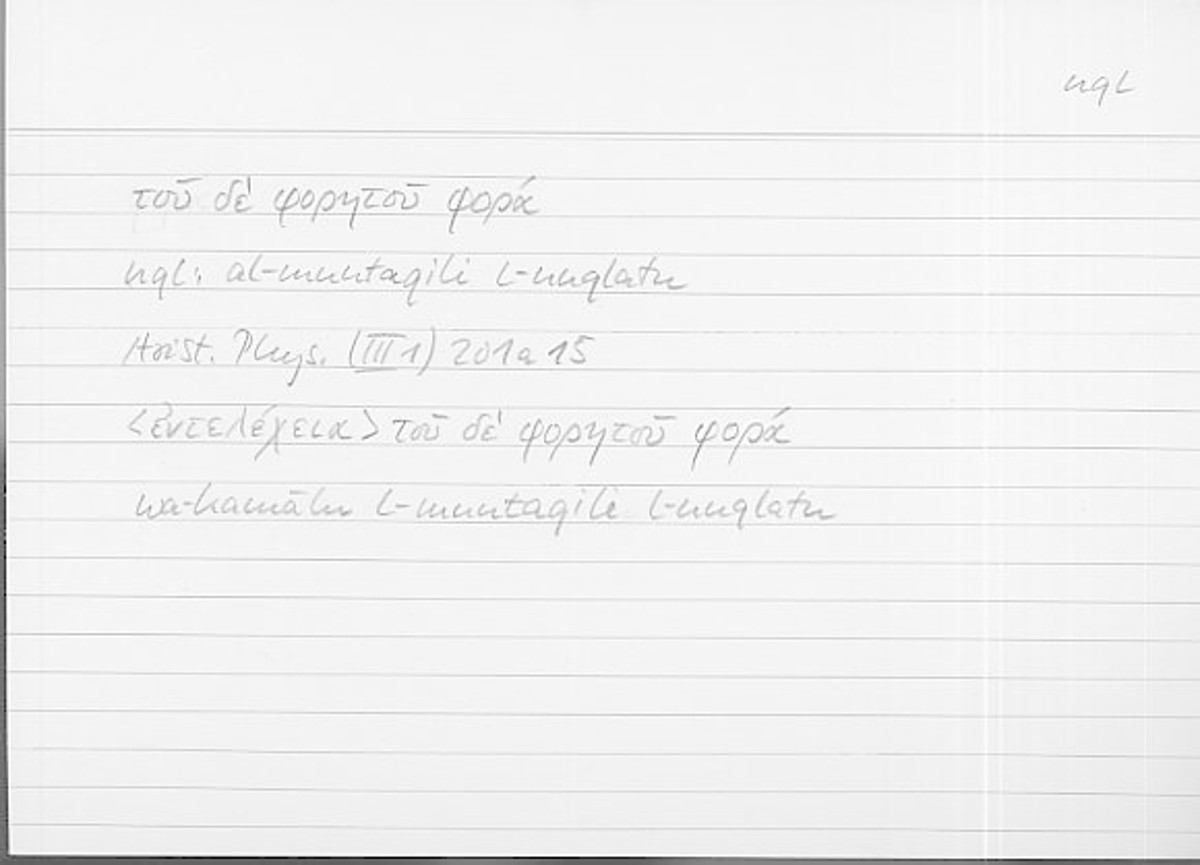 nql
τοῦ δὲ φορητοῦ φορά
nql: al-muntaqili l-nuqlatu
Arist. Phys. (III 1) 201a 15
<ἐντελέχεια> τοῦ δὲ φορητοῦ φορά
wa-kamālu l-muntaqili l-nuqlatu